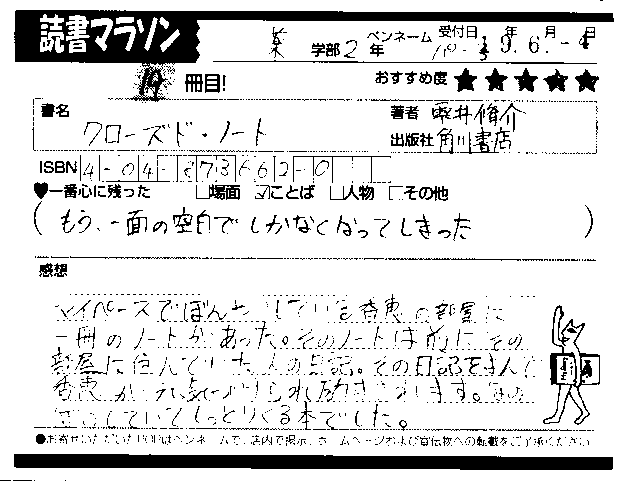 読書マラソン
学部2年 ペンネーム 受付日 年 6月 日
19冊目!
おすすめ度 ★★★★★
書名 クローズド・ノート
著者 雫井脩介
出版社 角川書店
ISBN 4-04-873662-0
♥一番心に残った □場面 ☑ことば □人物 □その他
(もう、一面の空白でしかなくなってしまった)
感想
マイペースでぼんやりしている香恵の部屋に
一冊のノートがあった。そのノートは前にその
部屋に住んでいた人の日記。その日記を読んで
香恵が元気づけられ励まされます。
していてしっとりくる本でした。
●お寄せいただいたPOPはペンネームで、店内で掲示、ホームページおよび宣伝物への転載をご了承ください